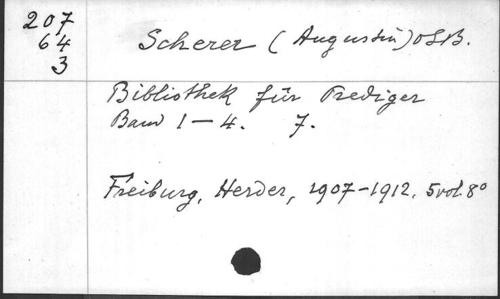 207
64
3
Scherer (Augustin) OSB.
Bibliothek für Prediger
Band 1-4. 7.
Freiburg, Herder, 1907-1912. 5 vol. 8°